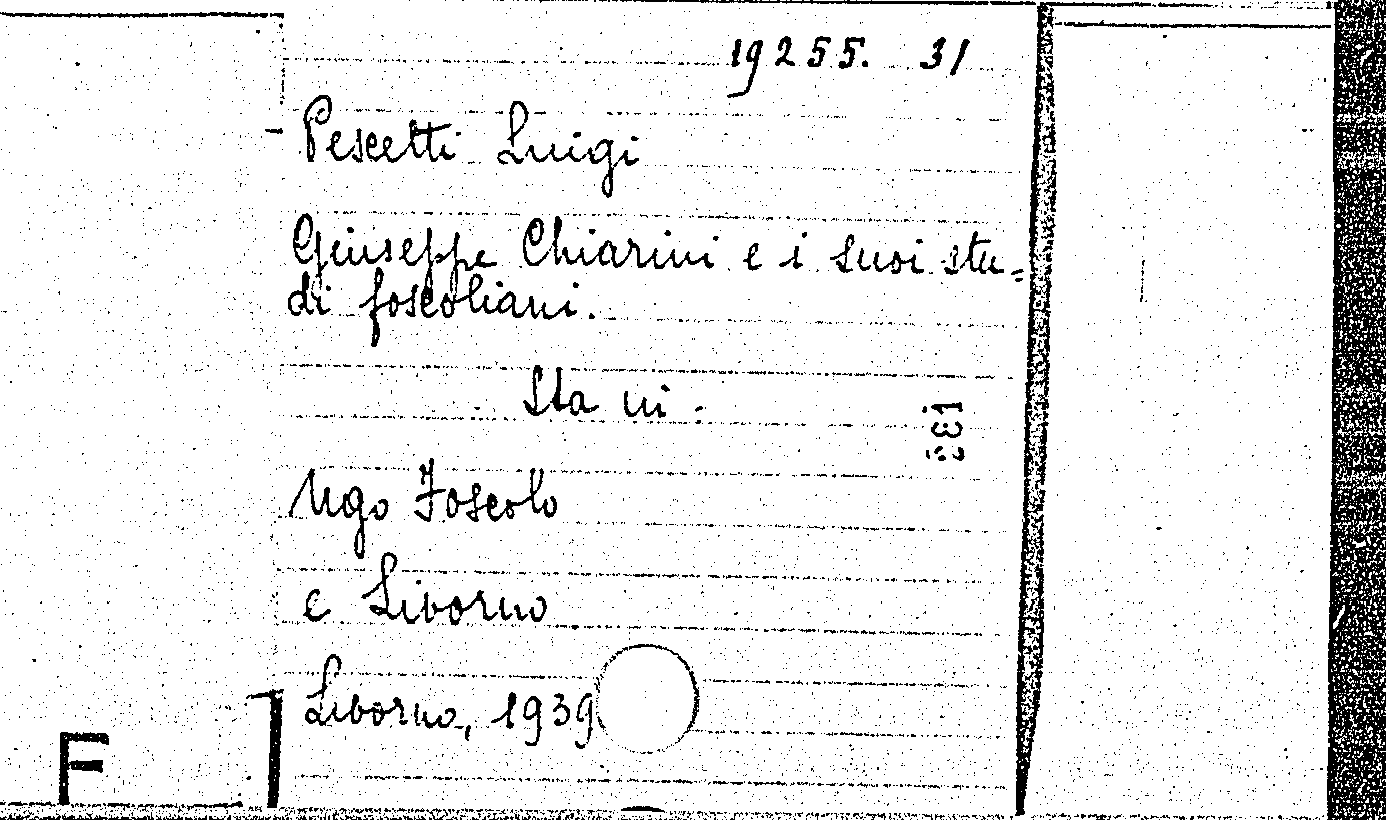 19255. 31
Pescetti Luigi
Giuseppe Chiarini e i suoi stu=
di foscoliani.
Sta in:
Ugo Foscolo
e Livorno
Livorno, 1939
F